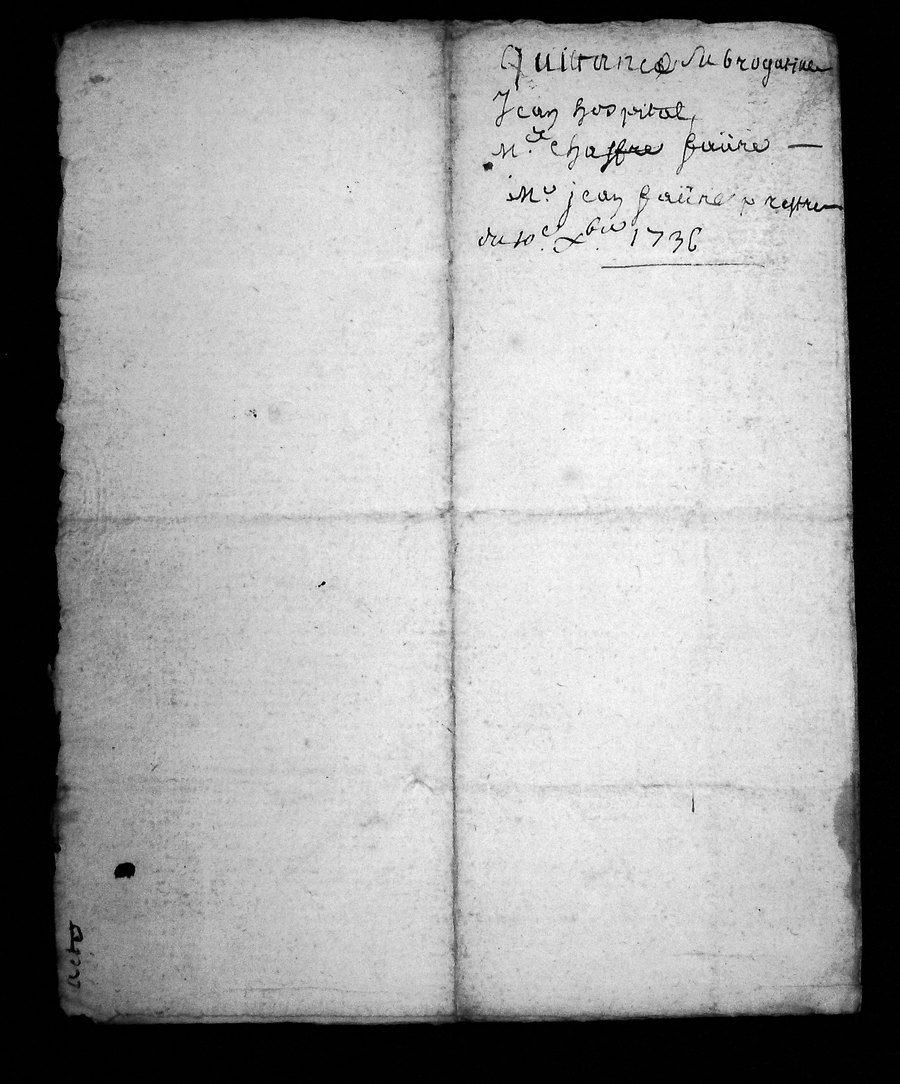 Quittance subrogatiue
Jean hospital,
Me Chaffre faüre —
Mr jean faüre prestre
du 10e xbre 1736
acto